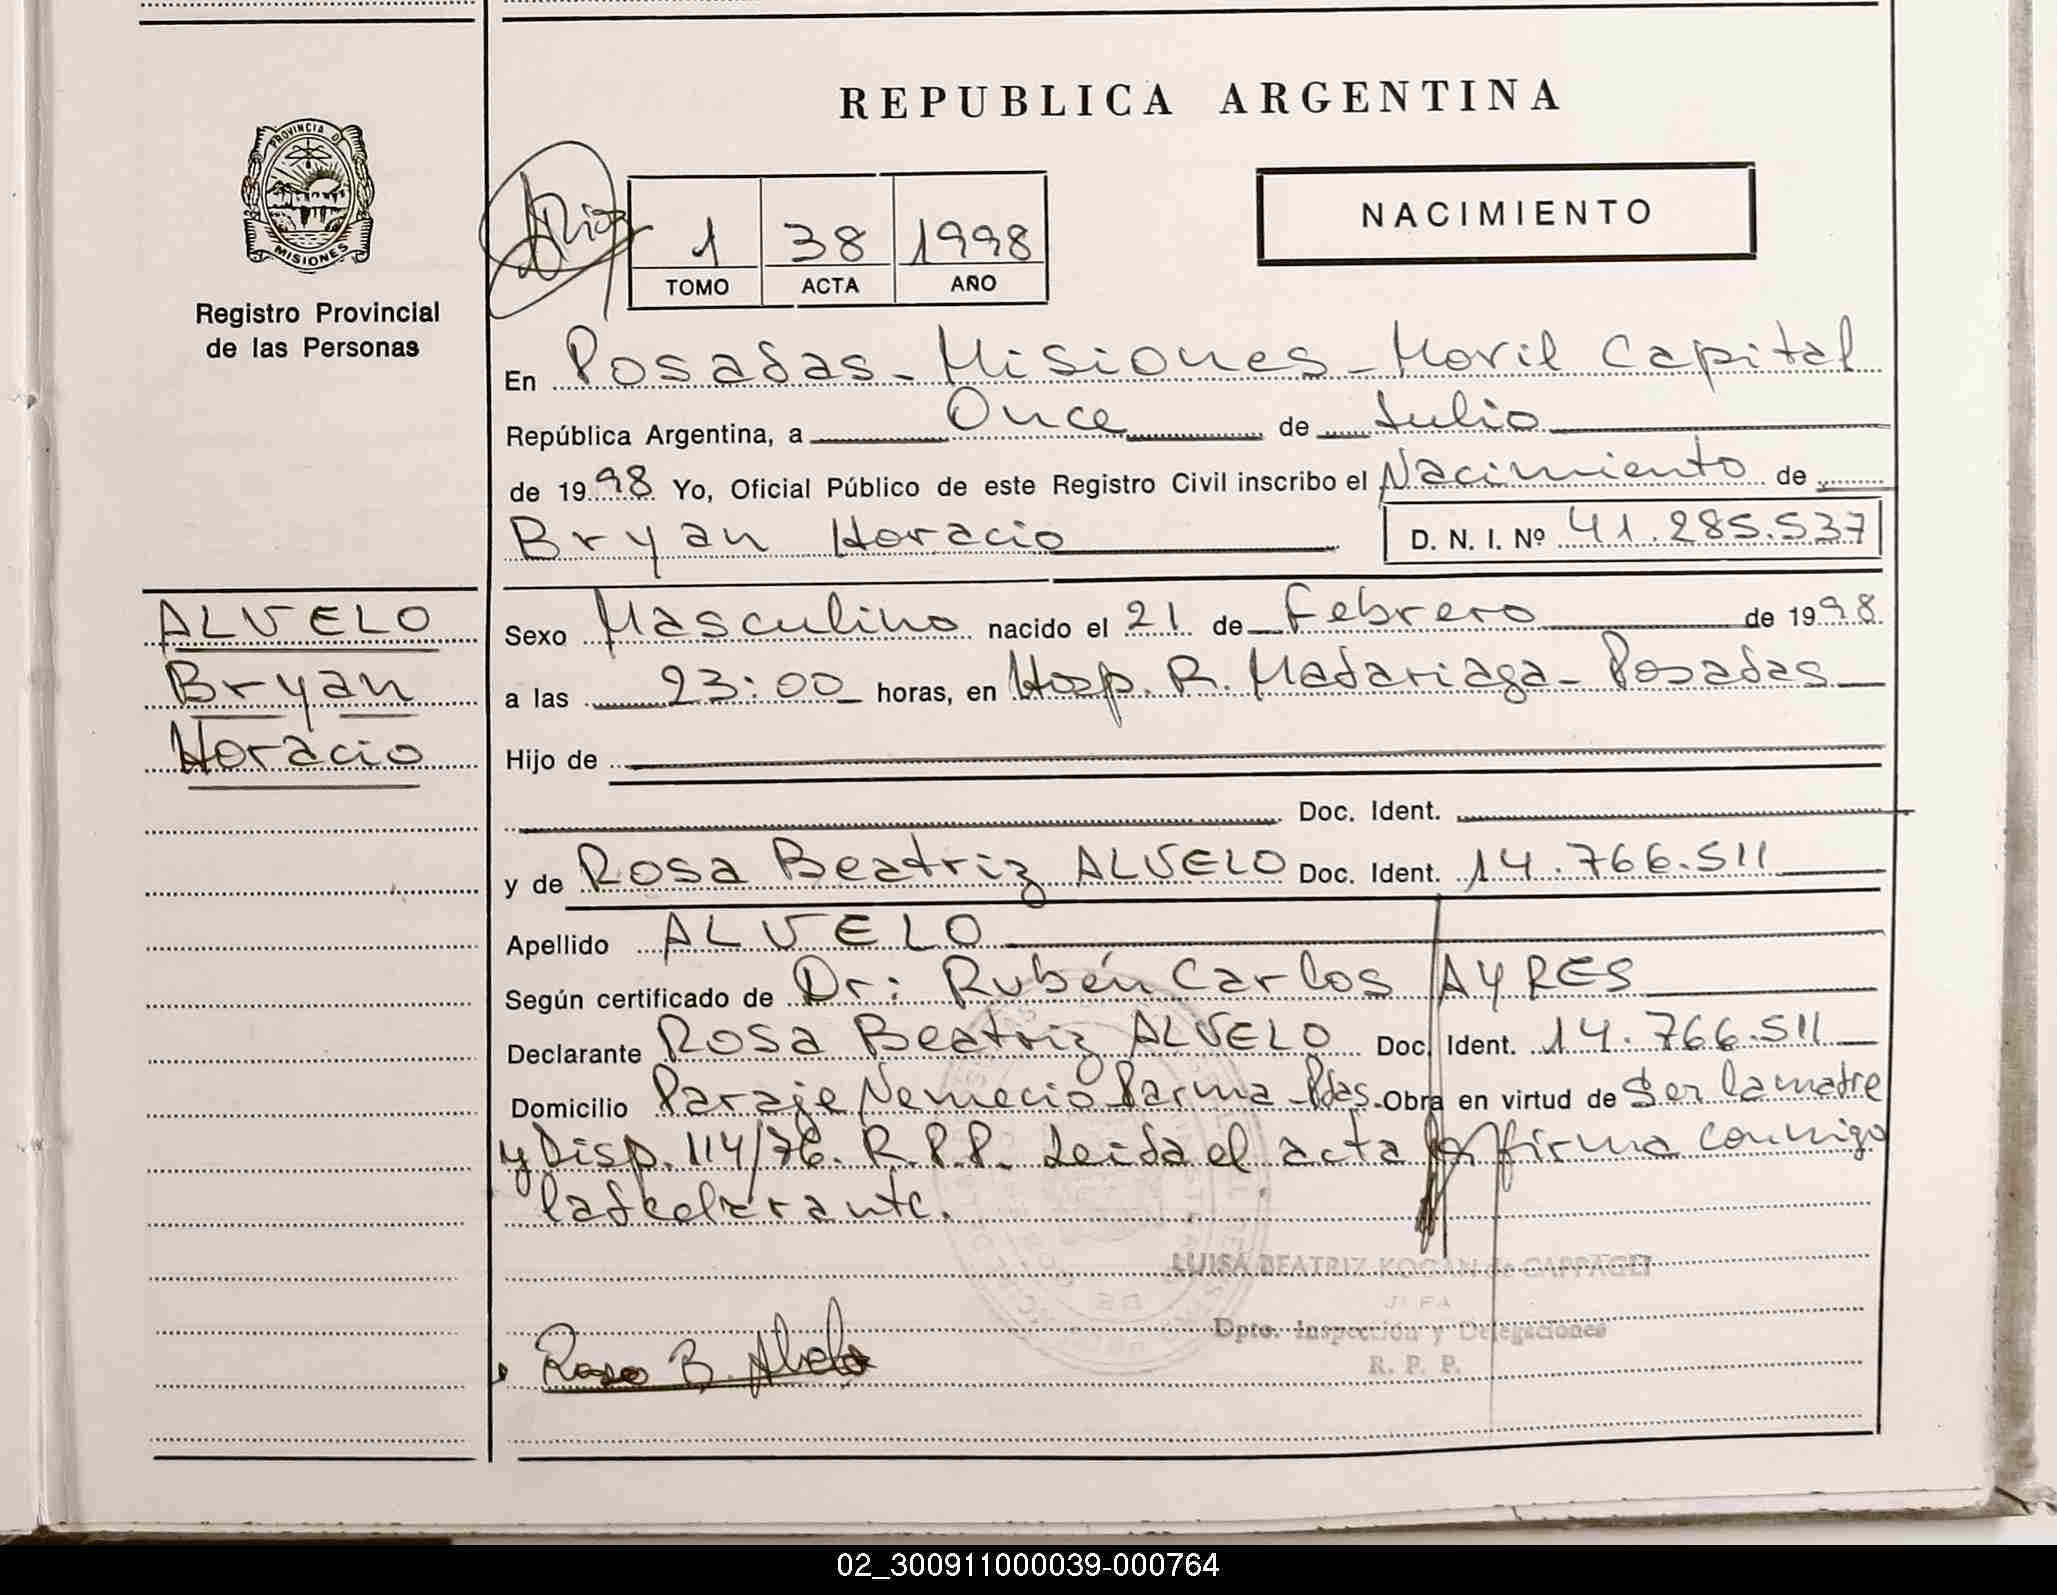 REPUBLICA ARGENTINA
PROVINCIA DE
MISIONES
Registro Provincial
de las Personas
1 38 1998
TOMO ACTA AÑO
NACIMIENTO
En Posadas - Misiones - Movil Capital
República Argentina, a Once de Julio
de 1998 Yo, Oficial Público de este Registro Civil inscribo el Nacimiento de
Bryan Horacio D. N. I. Nº 41.285.537
ALVELO
Bryan
Horacio
Sexo Masculino nacido el 21 de Febrero de 1998
a las 23:00 horas, en Hosp. R. Madariaga - Posadas
Hijo de
Doc. Ident.
y de Rosa Beatriz ALVELO Doc. Ident. 14.766.511
Apellido ALVELO
Según certificado de Dr: Rubén Carlos AYRES
Declarante Rosa Beatriz ALVELO Doc. Ident. 14.766.511
Domicilio Paraje Nemecio Parma - Pdas. Obra en virtud de ser la madre
y Disp. 114/76. R.P.P. Leida el acta firma conmigo
la declarante.
LUISA BEATRIZ KOGAN de
JEFA
Dpto. Inspección y Delegaciones
R. P. P.
Rosa B. Alvelo
02_300911000039-000764